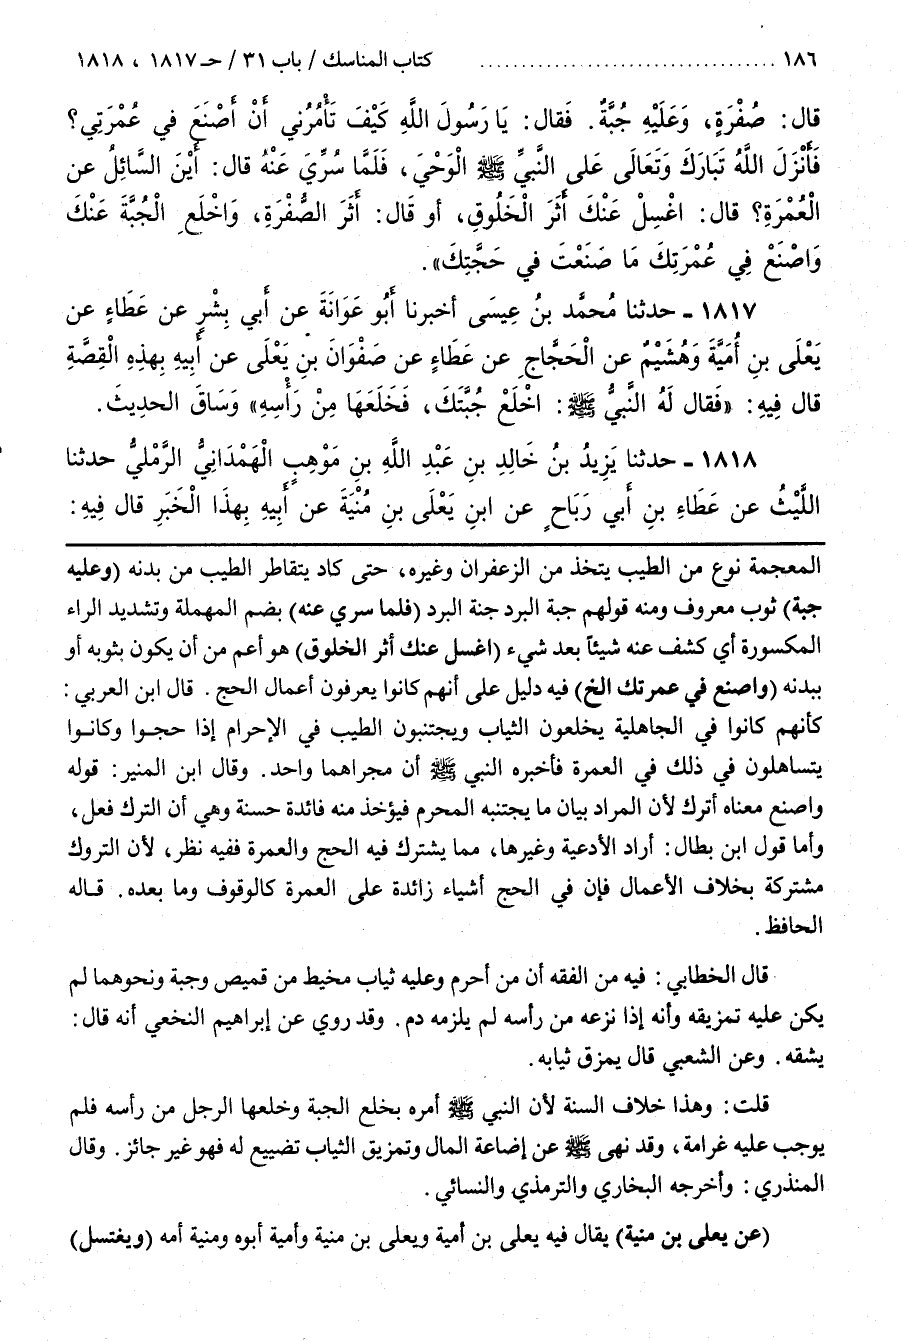 ١٨٦ ................................... كتاب المناسك / باب ٣١ / حـ ١٨١٧ ، ١٨١٨
قال: صُفْرَةٍ، وَعَلَيْهِ جُبَّةٌ. فَقال: يَا رَسُولَ اللَّهِ كَيْفَ تَأْمُرُني أَنْ أَصْنَعَ في عُمْرَتِي؟
فَأَنْزَلَ اللَّهُ تَبَارَكَ وَتَعَالَى عَلى النَّبيِّ ﷺ الْوَحْيَ، فَلَمَّا سُرِّيَ عَنْهُ قال: أَيْنَ السَّائِلُ عن
الْعُمْرَةِ؟ قال: اغْسِلْ عَنْكَ أَثَرَ الْخَلُوقِ، أو قَال: أَثَرَ الصُّفْرَةِ، وَاخْلَعِ الْجُبَّةَ عَنْكَ
وَاصْنَعْ فِي عُمْرَتِكَ مَا صَنَعْتَ في حَجَّتِكَ».
١٨١٧ ـ حدثنا مُحمَّد بنُ عِيسَى أخبرنا أَبُو عَوَانَةَ عن أَبي بِشْرٍ عن عَطَاءٍ عن
يَعْلَى بنِ أُمَيَّةَ وَهُشَيْمٌ عن الْحَجَّاجِ عن عَطَاءٍ عن صَفْوَانَ بنِ يَعْلَى عن أَبِيهِ بِهذِهِ الْقِصَّةِ
قال فِيهِ: «فَقال لَهُ النَّبيُّ ﷺ: اخْلَعْ جُبَّتَكَ، فَخَلَعَهَا مِنْ رَأْسِهِ» وَسَاقَ الحديثَ.
١٨١٨ ـ حدثنا يَزِيدُ بنُ خَالِدِ بنِ عَبْدِ اللَّهِ بنِ مَوْهِبٍ الْهَمْدَانِيُّ الرَّمْليُّ حدثنا
اللَّيْثُ عن عَطَاءِ بنِ أبي رَبَاحٍ عن ابنِ يَعْلَى بنِ مُنْيَةَ عن أَبِيهِ بِهذَا الْخَبَرِ قال فِيهِ:
المعجمة نوع من الطيب يتخذ من الزعفران وغيره، حتى كاد يتقاطر الطيب من بدنه (وعليه
جبة) ثوب معروف ومنه قولهم جبة البرد جنة البرد (فلما سري عنه) بضم المهملة وتشديد الراء
المكسورة أي كشف عنه شيئاً بعد شيء (اغسل عنك أثر الخلوق) هو أعم من أن يكون بثوبه أو
ببدنه (واصنع في عمرتك الخ) فيه دليل على أنهم كانوا يعرفون أعمال الحج. قال ابن العربي:
كأنهم كانوا في الجاهلية يخلعون الثياب ويجتنبون الطيب في الإحرام إذا حجوا وكانوا
يتساهلون في ذلك في العمرة فأخبره النبي ﷺ أن مجراهما واحد. وقال ابن المنير: قوله
واصنع معناه أترك لأن المراد بيان ما يجتنبه المحرم فيؤخذ منه فائدة حسنة وهي أن الترك فعل،
وأما قول ابن بطال: أراد الأدعية وغيرها، مما يشترك فيه الحج والعمرة ففيه نظر، لأن التروك
مشتركة بخلاف الأعمال فإن في الحج أشياء زائدة على العمرة كالوقوف وما بعده. قاله
الحافظ.
قال الخطابي: فيه من الفقه أن من أحرم وعليه ثياب مخيط من قميص وجبة ونحوهما لم
يكن عليه تمزيقه وأنه إذا نزعه من رأسه لم يلزمه دم. وقد روي عن إبراهيم النخعي أنه قال:
يشقه. وعن الشعبي قال يمزق ثيابه.
قلت: وهذا خلاف السنة لأن النبي ﷺ أمره بخلع الجبة وخلعها الرجل من رأسه فلم
يوجب عليه غرامة، وقد نهى ﷺ عن إضاعة المال وتمزيق الثياب تضييع له فهو غير جائز. وقال
المنذري: وأخرجه البخاري والترمذي والنسائي.
(عن يعلى بن منية) يقال فيه يعلى بن أمية ويعلى بن منية وأمية أبوه ومنية أمه (ويغتسل)